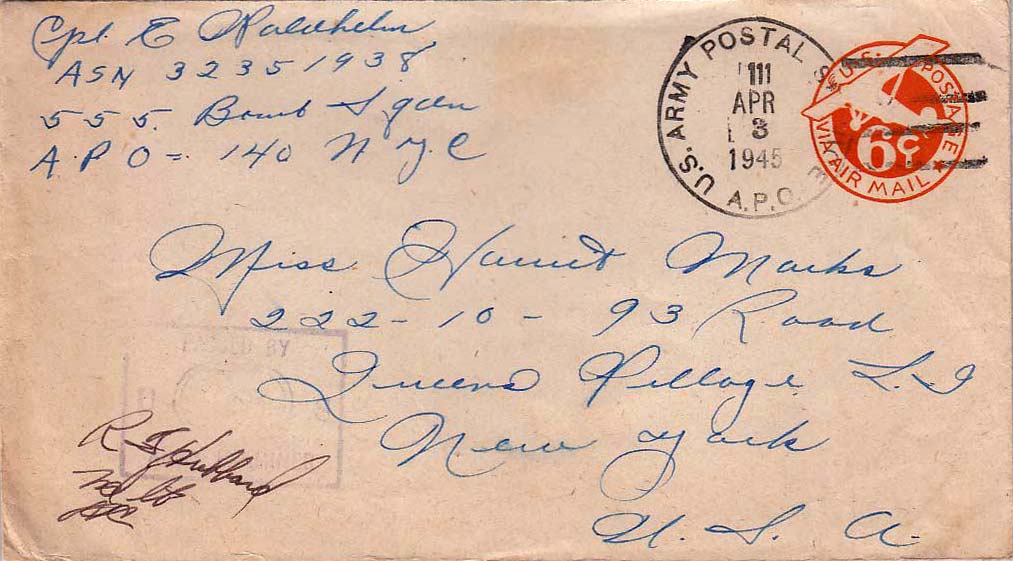 Cpl E Waldhelm
ASN 32351938
555 Bomb Sqdn
A.P.O - 140 N.Y.C
U.S. ARMY POSTAL S
111
APR
3
1945
A.P.O.
U.S. POSTAGE
6¢
VIA AIR MAIL
Miss Harriet Marks
222-10-93 Road
Queens Village L.I
New York
U.S.A.
PASSED BY
R Hubbard